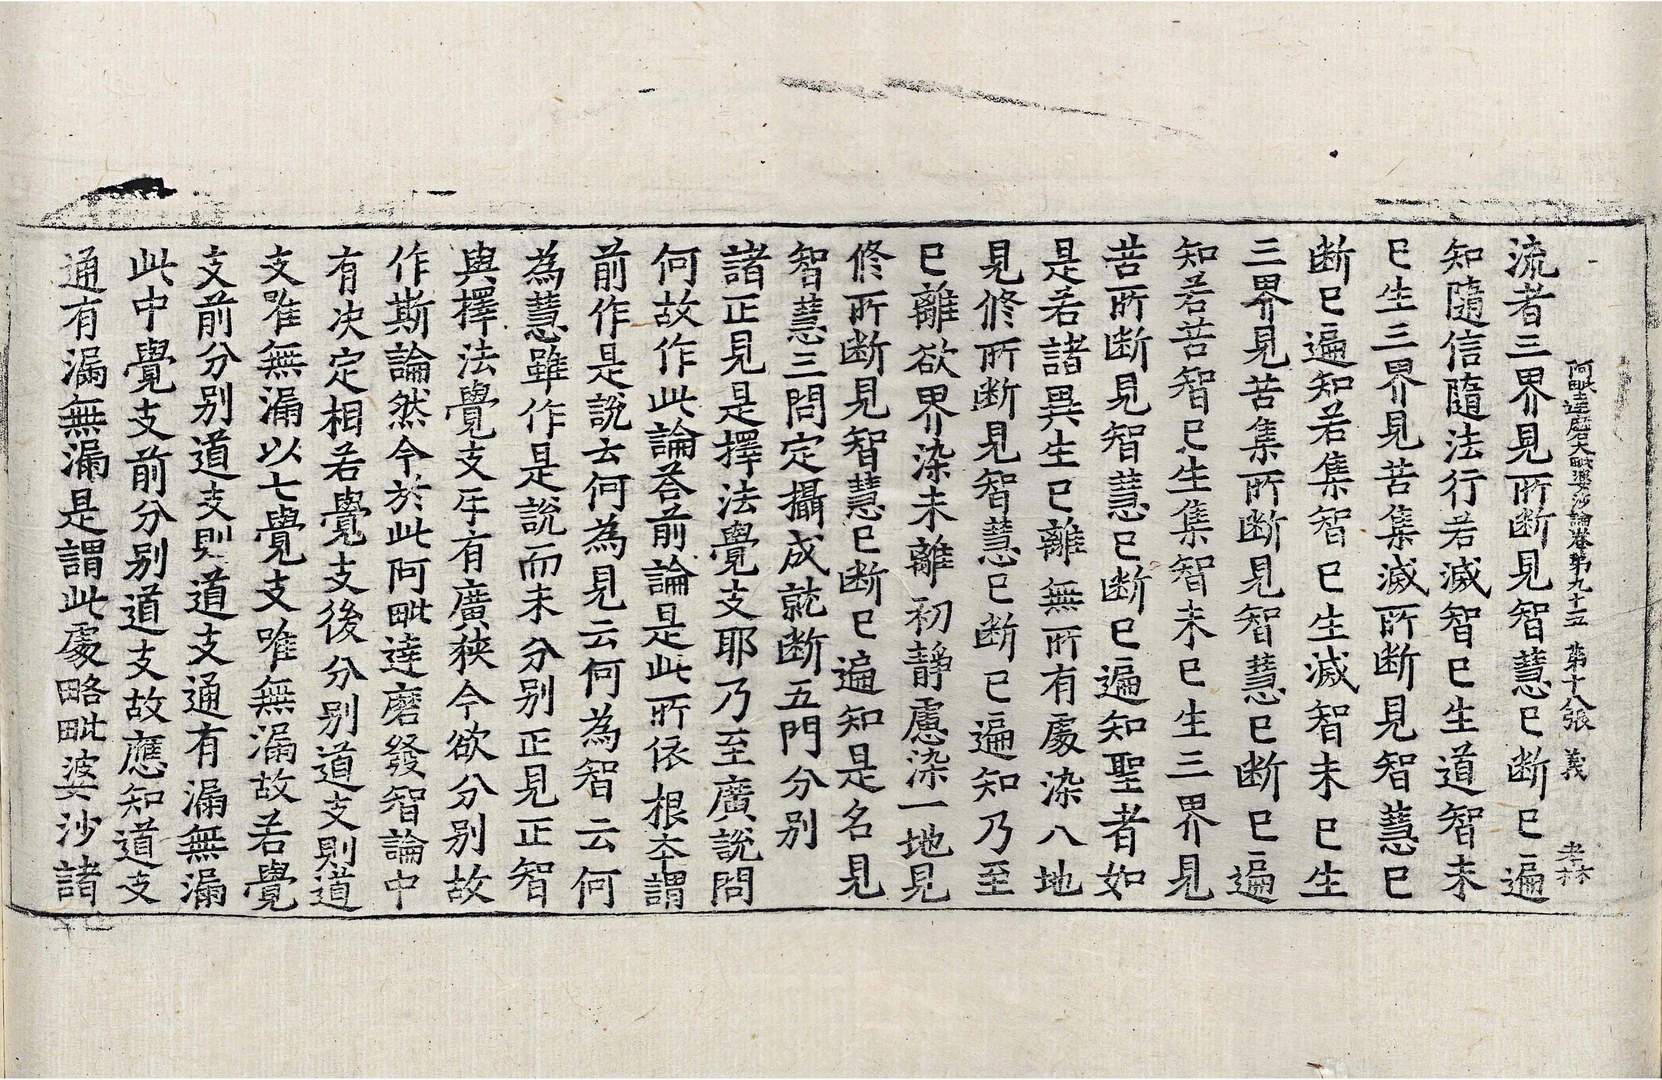 阿毗達磨大毗婆沙論卷第九十五　第十八張　義　孝林
流者三界見所断見智慧已断已遍
知隨信隨法行若滅智已生道智未
已生三界見苦集滅所断見智慧已
断已遍知若集智已生滅智未已生
三界見苦集所断見智慧已断已遍
知若苦智已生集智未已生三界見
苦所断見智慧已断已遍知聖者如
是若諸異生已離無所有處染八地
見修所断見智慧已断已遍知乃至
已離欲界染未離初静慮染一地見
修所断見智慧已断已遍知是名見
智慧三問定攝成就断五門分别
諸正見是擇法覺支耶乃至廣說問
何故作此論荅前論是此所依根本謂
前作是說云何為見云何為智云何
為慧雖作是說而未分别正見正智
與擇法覺支互有廣狹今欲分别故
作斯論然今於此阿毗達磨發智論中
有决定相若覺支後分别道支則道
支唯無漏以七覺支唯無漏故若覺
支前分别道支則道支通有漏無漏
此中覺支前分别道支故應知道支
通有漏無漏是謂此處略毗婆沙諸